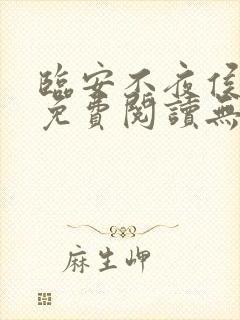 臨安不夜侯
免費閱讀無
麻生岬